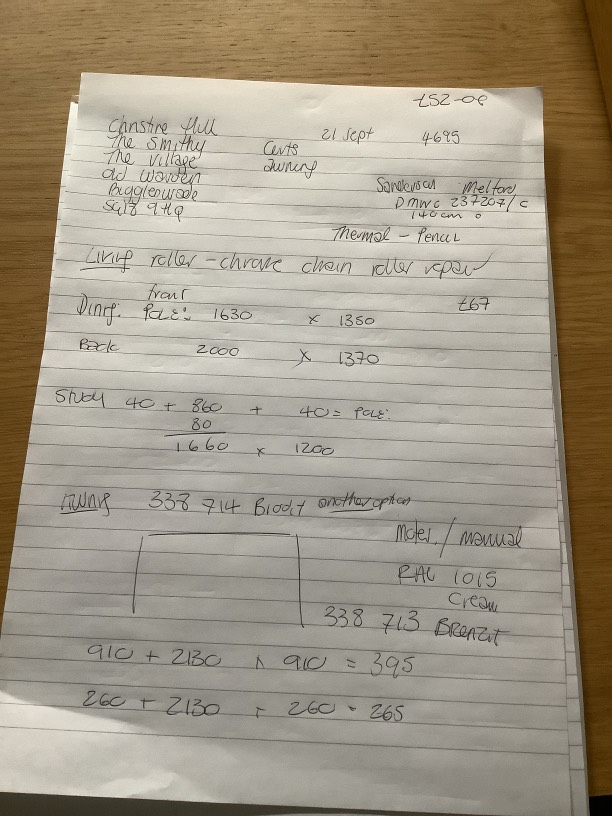 £52-00
Christine Hull 21 Sept 4695
The Smithy Certs
The Village Awning
old Warden Sanderson Melford
Biggleswade DMWC 237207/C
SG18 9HQ 140cm
Thermal - Pencil
Living roller - chrome chain roller repair
front £67
Dining: Pole: 1630 x 1350
Back 2000 x 1370
Study 40 + 860 + 40 = Pole:
80
1660 x 1200
Awning 338 714 another option
Moter / manual
RAL 1015
Cream
338 713
910 + 2130 + 910 = 395
260 + 2130 + 260 = 265